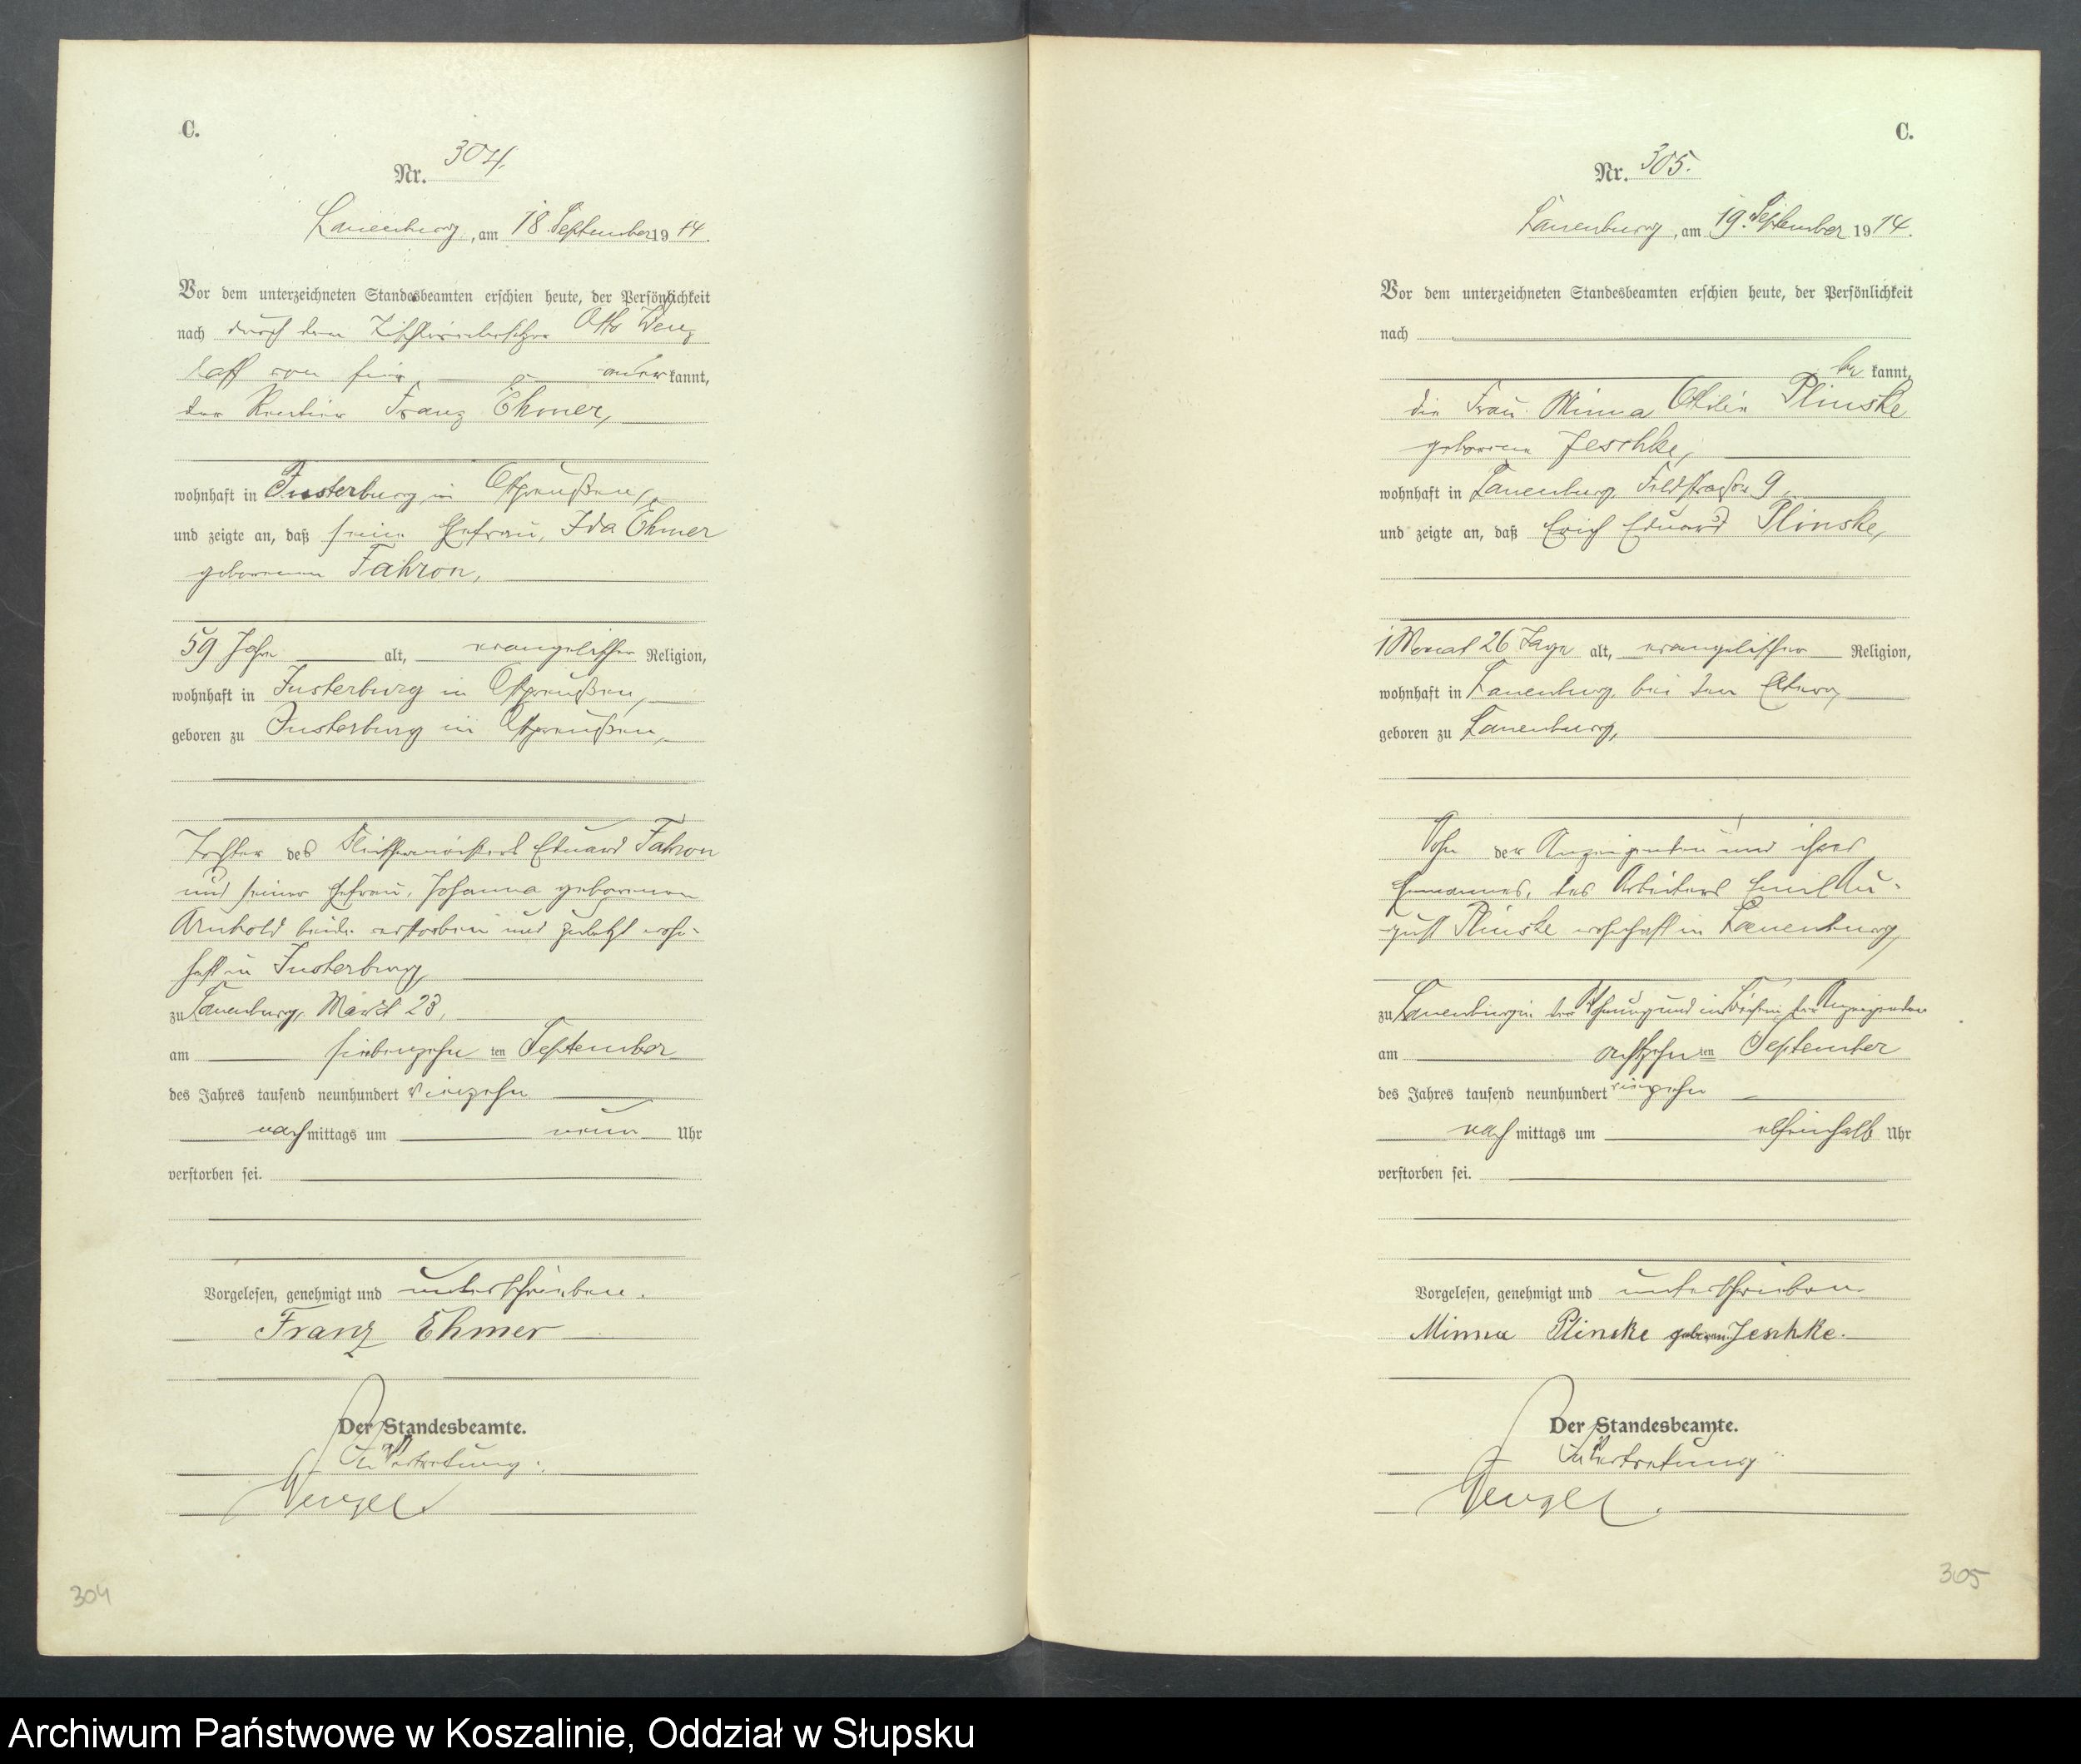 C.
Nr. 304.
Lauenburg, am 18. September 1914.
Vor dem unterzeichneten Standesbeamten erschien heute, der Persönlichkeit
nach durch den Otto Wenz
laff von hier anerkannt,
der Rentier Franz Ehmer,
wohnhaft in Insterburg in Ostpreußen,
und zeigte an, daß seine Ehefrau, Ida Ehmer
geborenen Fahron,
59 Jahre alt, evangelischer Religion,
wohnhaft in Insterburg in Ostpreußen,
geboren zu Insterburg in Ostpreußen,
Tochter des Eduard Fahron
und seiner Ehefrau, Johanna geborenen
Arnhold beide verstorben und zuletzt wohn-
haft in Insterburg,
zu Lauenburg, Markt 23,
am siebenzehn ten September
des Jahres tausend neunhundert vierzehn
nachmittags um neun Uhr
verstorben sei.
Vorgelesen, genehmigt und unterschrieben.
Franz Ehmer
Der Standesbeamte.
In Vertretung:
304
C.
Nr. 305.
Lauenburg, am 19. September 1914.
Vor dem unterzeichneten Standesbeamten erschien heute, der Persönlichkeit
nach
bekannt,
die Frau Minna Ottilie Plinske
geborene Jeschke,
wohnhaft in Lauenburg Feldstraße 9,
und zeigte an, daß Erich Eduard Plinske,
1 Monat 26 Tage alt, evangelischer Religion,
wohnhaft in Lauenburg, bei den Eltern,
geboren zu Lauenburg,
Sohn der Anzeigenden und ihres
Ehemannes, des Arbeiters Emil Au-
gust Plinske wohnhaft in Lauenburg,
zu Lauenburg in der Wohnung und im Beisein der Anzeigenden
am achtzehn ten September
des Jahres tausend neunhundert vierzehn
nachmittags um elfeinhalb Uhr
verstorben sei.
Vorgelesen, genehmigt und unterschrieben
Minna Plinske geboren Jeschke.
Der Standesbeamte.
In Vertretung
305
Archiwum Państwowe w Koszalinie, Oddział w Słupsku